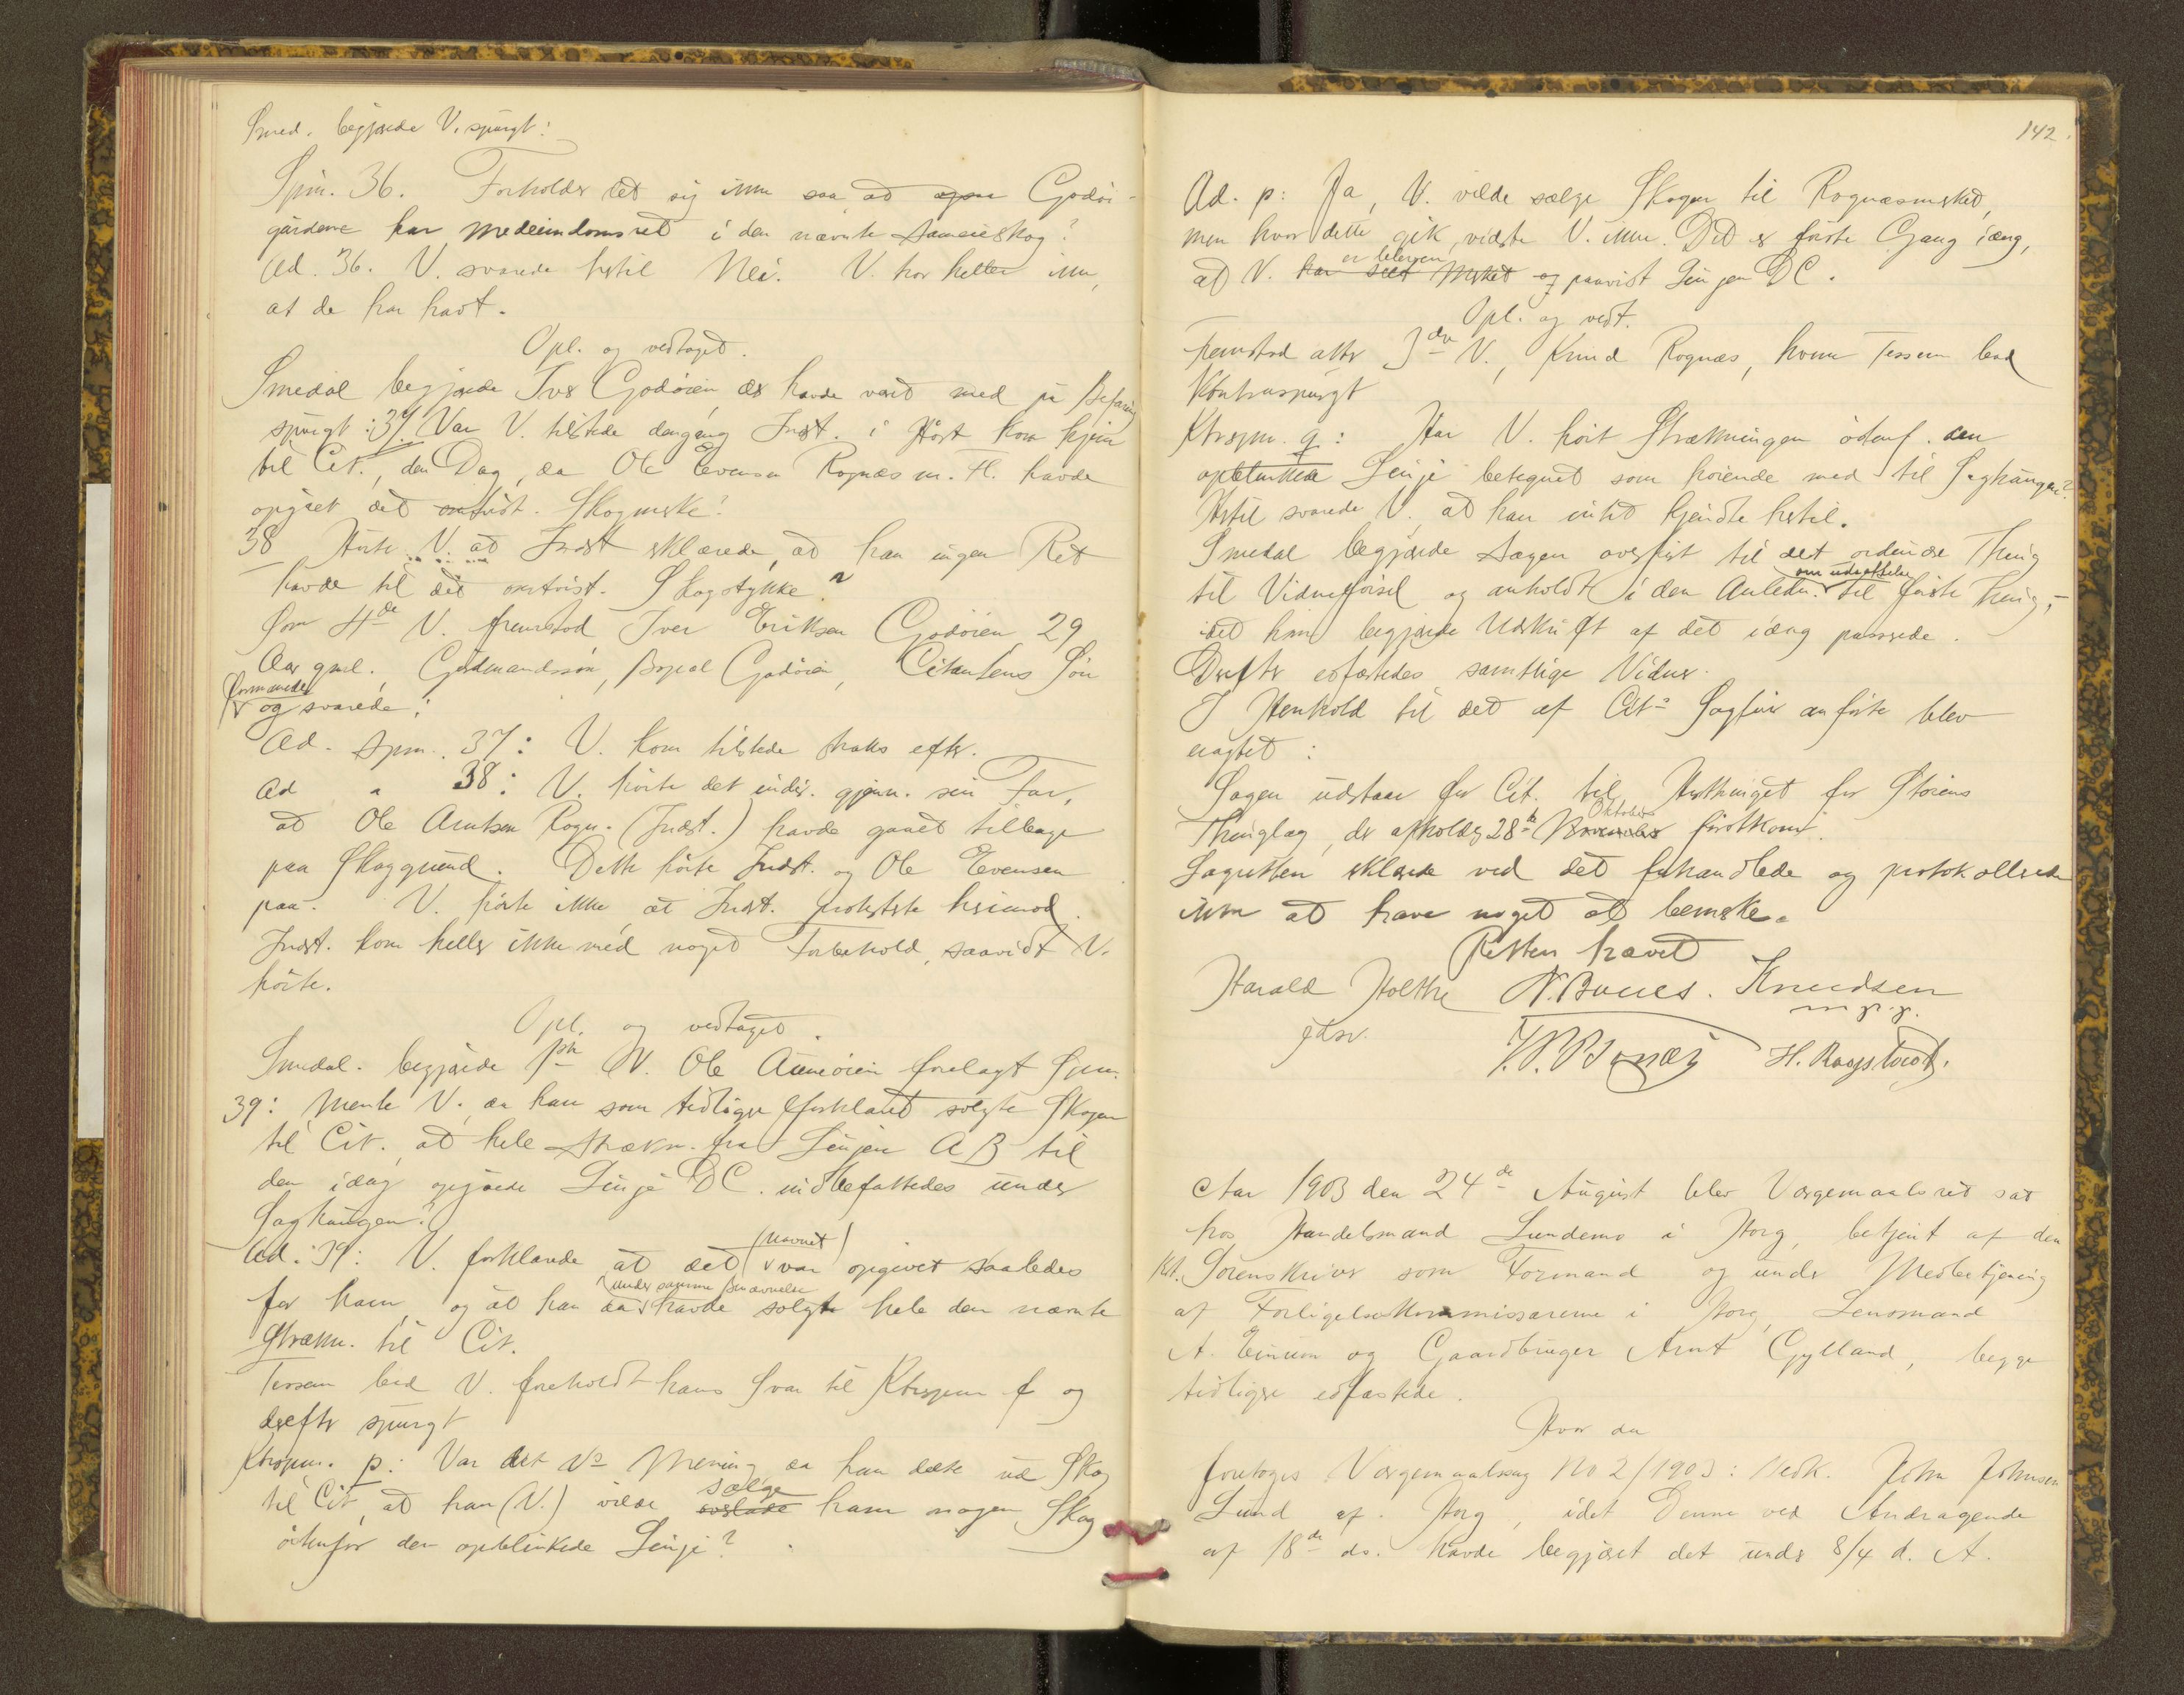 Smed. begjærede V. spurgt:
Spm. 36. Forholder det sig ikke saa, at ogsaa Godøi-
gårdene har medeiendomsret i den nævnte Sameieskog?
Ad. 36. V. svarede hertil Nei. V. tror heller ikke,
at de har havt.
Opl. og vedtaget.
Smedal begjærede Iver Godøien, der havde været med på Befaring
spurgt: 37. Var V. tilstede dengang Indst. i Høst kom hjem
til Cit., den Dag, da Ole Evensen Rognæs m. Fl. havde
opgået det omtvist. Skogmærke?
38 Hørte V. at Indst erklærede, at han ingen Ret
havde til det omtvist. Skogstykke?
Som 4de V. fremstod Iver Eriksen Godøien 29
Aar gml. Gårdmandssøn, Bopæl Godøien, Citantens Søn
formanedes
og svarede:
Ad. Spm. 37: V. kom tilstede straks efter.
Ad " 38: V. hørte det indir. gjenn. sin Far,
at Ole Arntsen Rogn. (Indst.) havde gaaet tilbage
paa Skoggrund. Dette hørte Indst. og Ole Evensen
paa. V. hørte ikke at Indst. protesterte herimod.
Indst. kom heller ikke med noget Forbehold, saavidt V.
hørte.
Opl. og vedtaget.
Smedal. begjærede V. Ole Aunøien forelagt Spm.
39: Mente V., da han som tidligere forklaret solgte Skogen
til Cit., at hele Strækn. fra Linjen AB til
den idag opgåede Linje DC. indbefattedes under
Saghaugen?
(navnet)
Ad. 39: V. forklarede at det var opgivet saaledes
under samme Benævnelse
for ham, og at han da havde solgt hele den nævnte
Strækn. til Cit.
Tessem bad V. foreholdt hans Svar til Ktrspm f og
derefter spurgt
Ktrspm. p: Var det Vs Mening da han delte ud Skog
sælge
til Cit, at han (V.) vilde overlade ham nogen Skog
østenfor den opblinkede Linje?
142.
Ad. p: Ja, V. vilde sælge Skogen til Rognæsmærket,
men hvor dette gik, vidste V. ikke. Det er første Gang idag,
er bleven
at V. har seet Mærket og paavist Linjen DC.
Opl. og vedt.
Fremstod atter 3die V., Knud Rognæs, hvem Tessem bad
Kontraspurgt
Ktrspm. q: Har V. hørt Strækningen østenf. den
opblinkede Linje betegnet som hørende med til Saghaugen?
Hertil svarede V. at han intet kjendte hertil.
Smedal begjærede Sagen overført til det ordinære Thing
om udsættelse
til Vidneførsel og anholdt i den Anledn. til første Thing,
idet han begjærede Udskrift af det idag passerede.
Derefter edfæstedes samtlige Vidner.
I Henhold til det af Cits Sagfører anførte blev
eragtet:
Sagen udstaar for Cit. til Høstthinget for Størens
Oktober
Thinglag, der afholdes 28de November førstkom.
Lagretten erklærede ved det forhandlede og protokollerede
ikke at have noget at bemerke.
Retten hævet
Harald Holthe N. Buues. Knudsen
gdsv. m. p. p.
H. Raagstvedt.
Aar 1903 den 24de August blev Værgemaalsret sat
hos Handelsmand Lundemo i Horg, betjent af den
kst. Sorenskriver som Formand og under Medbetjening
af Forligelseskommissærerne i Horg, Lensmand
A. Einum og Gaardbruger Arnt Gylland, begge
tidligere edfæstede.
Hvor da
foretoges Værgemaalssag No 2/1903: Vedk. John Johnsen
Lund af Horg, idet Denne ved Andragende
af 18de ds. havde begjæret det under 8/4 d. A.